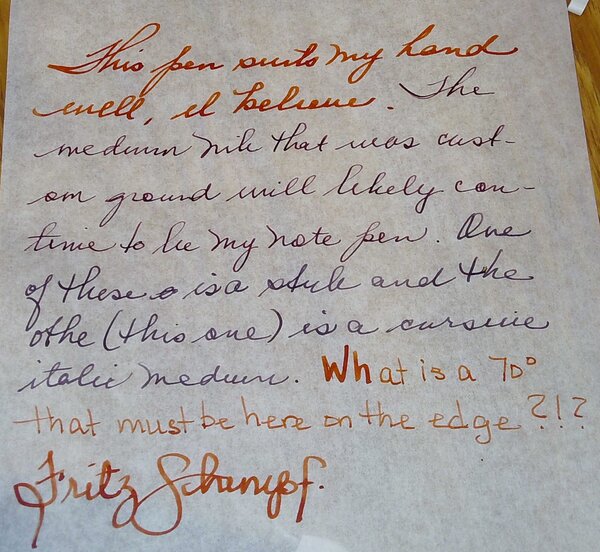 This pen suits my hand
well, I believe. The
medium nib that was cust-
om ground will likely con-
tinue to be my note pen. One
of these is a stub and the
othe (this one) is a cursive
italic medium. What is a 70°
that must be here on the edge ?!?
Fritz Schampf.